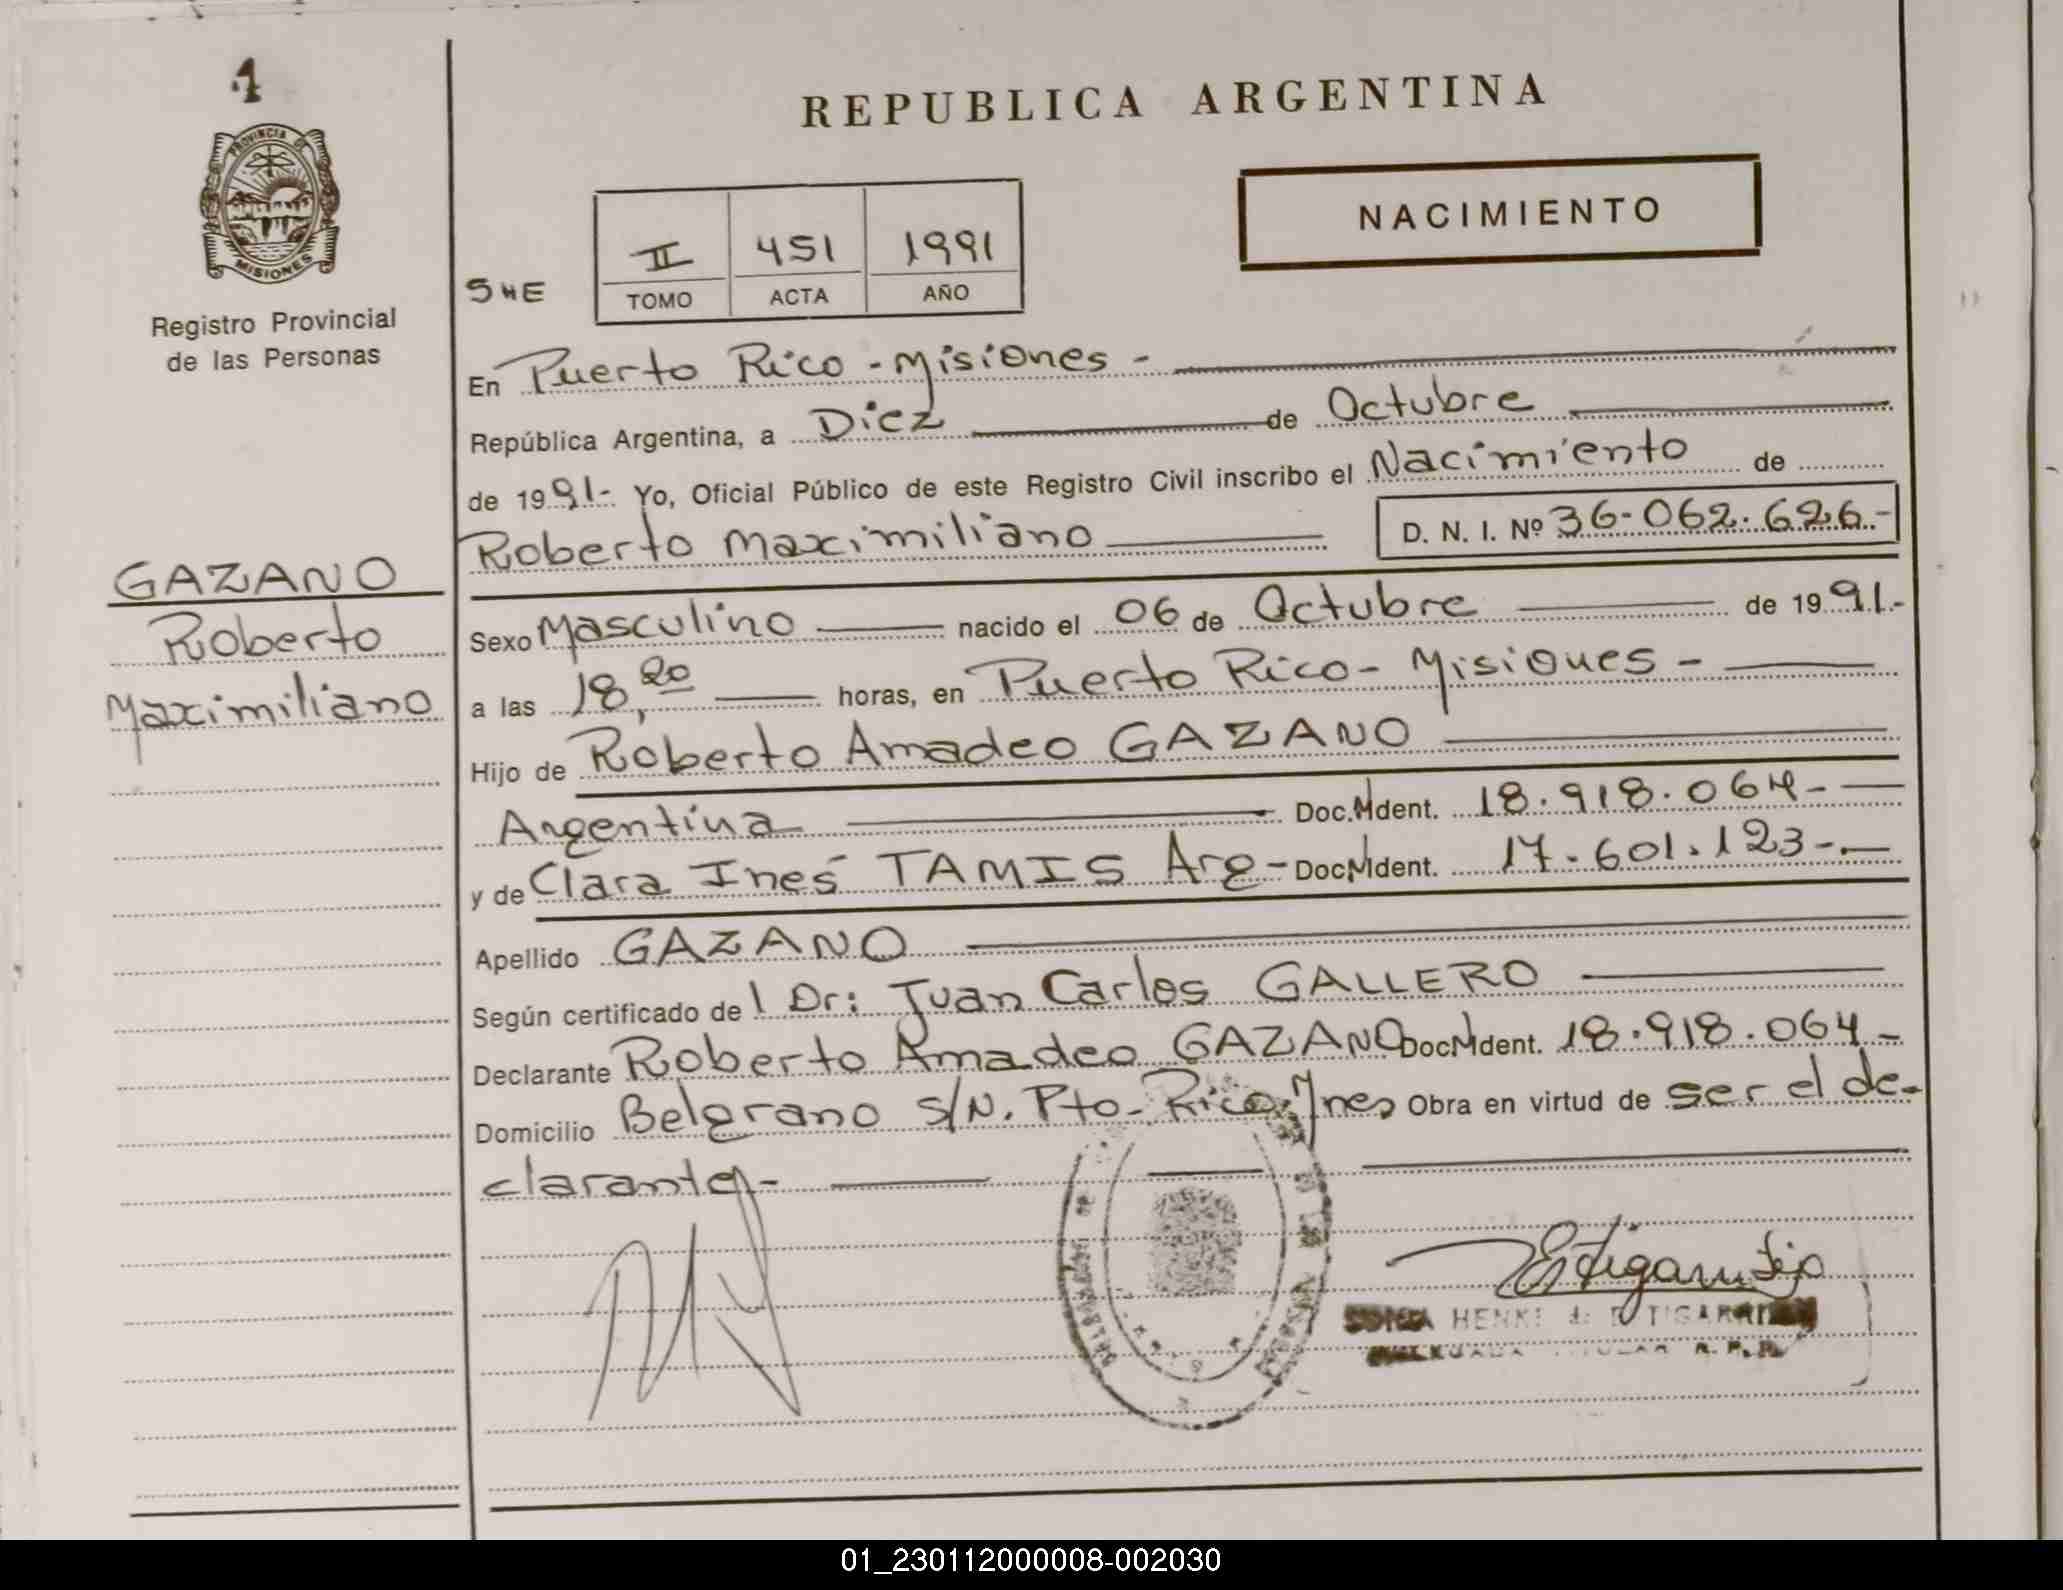 1
PROVINCIA DE
MISIONES
Registro Provincial
de las Personas
GAZANO
Roberto
Maximiliano
REPUBLICA ARGENTINA
NACIMIENTO
SHE
II 451 1991
TOMO ACTA AÑO
En Puerto Rico - Misiones -
República Argentina, a Diez de Octubre
de 1991- Yo, Oficial Público de este Registro Civil inscribo el Nacimiento de
Roberto Maximiliano D. N. I. Nº 36.062.626.-
Sexo Masculino nacido el 06 de Octubre de 1991.-
a las 18,20 horas, en Puerto Rico - Misiones -
Hijo de Roberto Amadeo GAZANO
Argentina Doc. M Ident. 18.918.064-
y de Clara Inés TAMIS Arg- Doc M Ident. 17.601.123-.
Apellido GAZANO
Según certificado del Dr: Juan Carlos GALLERO
Declarante Roberto Amadeo GAZANO Doc M Ident. 18.918.064-
Domicilio Belgrano s/N. Pto. Rico. Mnes Obra en virtud de ser el de-
clarante.-
HENKE de ESTIGARRIBIA
R. P. P.
01_230112000008-002030